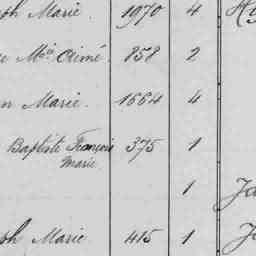 ph Marie 1970 4
Mie Aimé 858 2
n Marie 1664 4
Baptiste François 375 1
Marie
1 Ja
ph Marie 415 1 Jo